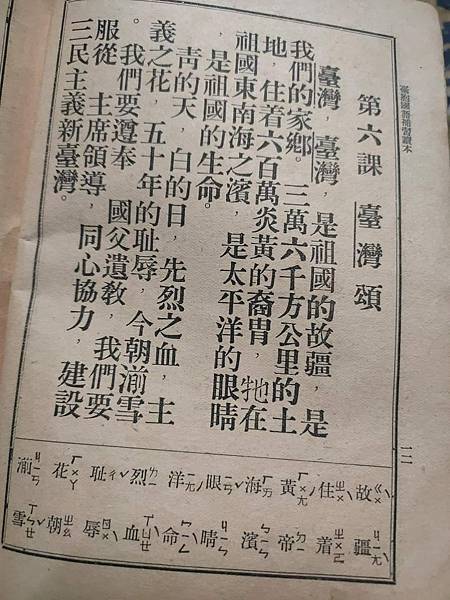 臺灣國語補習讀本
第六課 臺灣頌
臺灣,臺灣,是祖國的故疆,是
我們的家鄉。三萬六千方公里的土
地,住着六百萬炎黃的裔胄,牠在
祖國東南海之濱,是太平洋的眼睛
,是祖國的生命。
靑的天,白的日,先烈之血,主
義之花,五十年的耻辱,今朝湔雪
。我們要遵奉 國父遺敎,我們要
服從 主席領導,同心協力,建設
三民主義新臺灣。
故ㄍㄨˋ 疆ㄐㄧㄤ
住ㄓㄨˋ 着
黃ㄏㄨㄤˊ 帝
海ㄏㄞˇ 濱ㄅㄧㄣ
眼ㄧㄢˇ 睛ㄐㄧㄥ
洋ㄧㄤˊ 命ㄇㄧㄥˋ
烈ㄌㄧㄝˋ 血
耻ㄔˇ 辱
花ㄏㄨㄚ 朝ㄓㄠ
湔ㄐㄧㄢ 雪